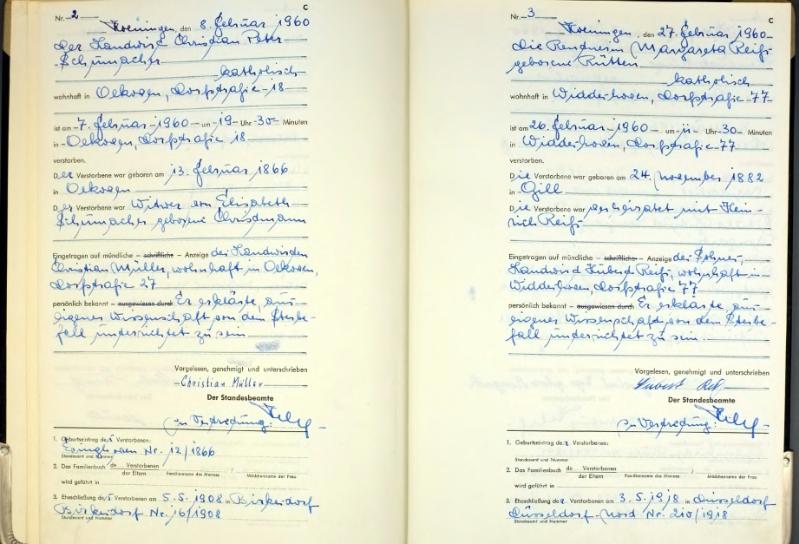 C
Nr. 2
Hoeningen, den 8. Februar 1960
Der Landwirt Christian Peter
Schumacher
katholisch
wohnhaft in Oekoven, Dorfstraße 18
ist am 7. Februar 1960 um 19 Uhr 30 Minuten
in Oekoven, Dorfstraße 18
verstorben.
Der Verstorbene war geboren am 13. Februar 1866
in Oekoven
Der Verstorbene war Witwer von Elisabeth
Schumacher geborene Christmann
Eingetragen auf mündliche – schriftliche – Anzeige des Landwirten
Christian Müller, wohnhaft in Oekoven,
Dorfstraße 27
persönlich bekannt – ausgewiesen durch Er erklärte, aus
eigener Wissenschaft von dem Sterbe-
fall unterrichtet zu sein
Vorgelesen, genehmigt und unterschrieben
Christian Müller
Der Standesbeamte
in Vertretung:
1. Geburtseintrag des Verstorbenen:
Nr. 12/1866
Standesamt und Nummer
2. Das Familienbuch des Verstorbenen
der Eltern Familienname des Mannes Mädchenname der Frau
wird geführt in
3. Eheschließung des Verstorbenen am 5.5.1908 in Birkesdorf
Birkesdorf Nr. 16/1908
Standesamt und Nummer
C
Nr. 3
Hoeningen, den 27. Februar 1960
Die Rentnerin Margareta Reiß
geborene Rütten
katholisch
wohnhaft in Widdeshoven, Dorfstraße 77
ist am 26. Februar 1960 um 11 Uhr 30 Minuten
in Widdeshoven, Dorfstraße 77
verstorben.
Die Verstorbene war geboren am 24. November 1882
in Gill
Die Verstorbene war verheiratet mit Hein-
rich Reiß
Eingetragen auf mündliche – schriftliche – Anzeige des Sohnes,
Landwirt Hubert Reiß, wohnhaft in
Widdeshoven, Dorfstraße 77
persönlich bekannt – ausgewiesen durch Er erklärte, aus
eigener Wissenschaft von dem Sterbe-
fall unterrichtet zu sein.
Vorgelesen, genehmigt und unterschrieben
Hubert Reiß
Der Standesbeamte
in Vertretung:
1. Geburtseintrag der Verstorbenen:
Standesamt und Nummer
2. Das Familienbuch der Verstorbenen
der Eltern Familienname des Mannes Mädchenname der Frau
wird geführt in
3. Eheschließung der Verstorbenen am 3.5.1918 in Düsseldorf
Düsseldorf-Nord Nr. 210/1918
Standesamt und Nummer